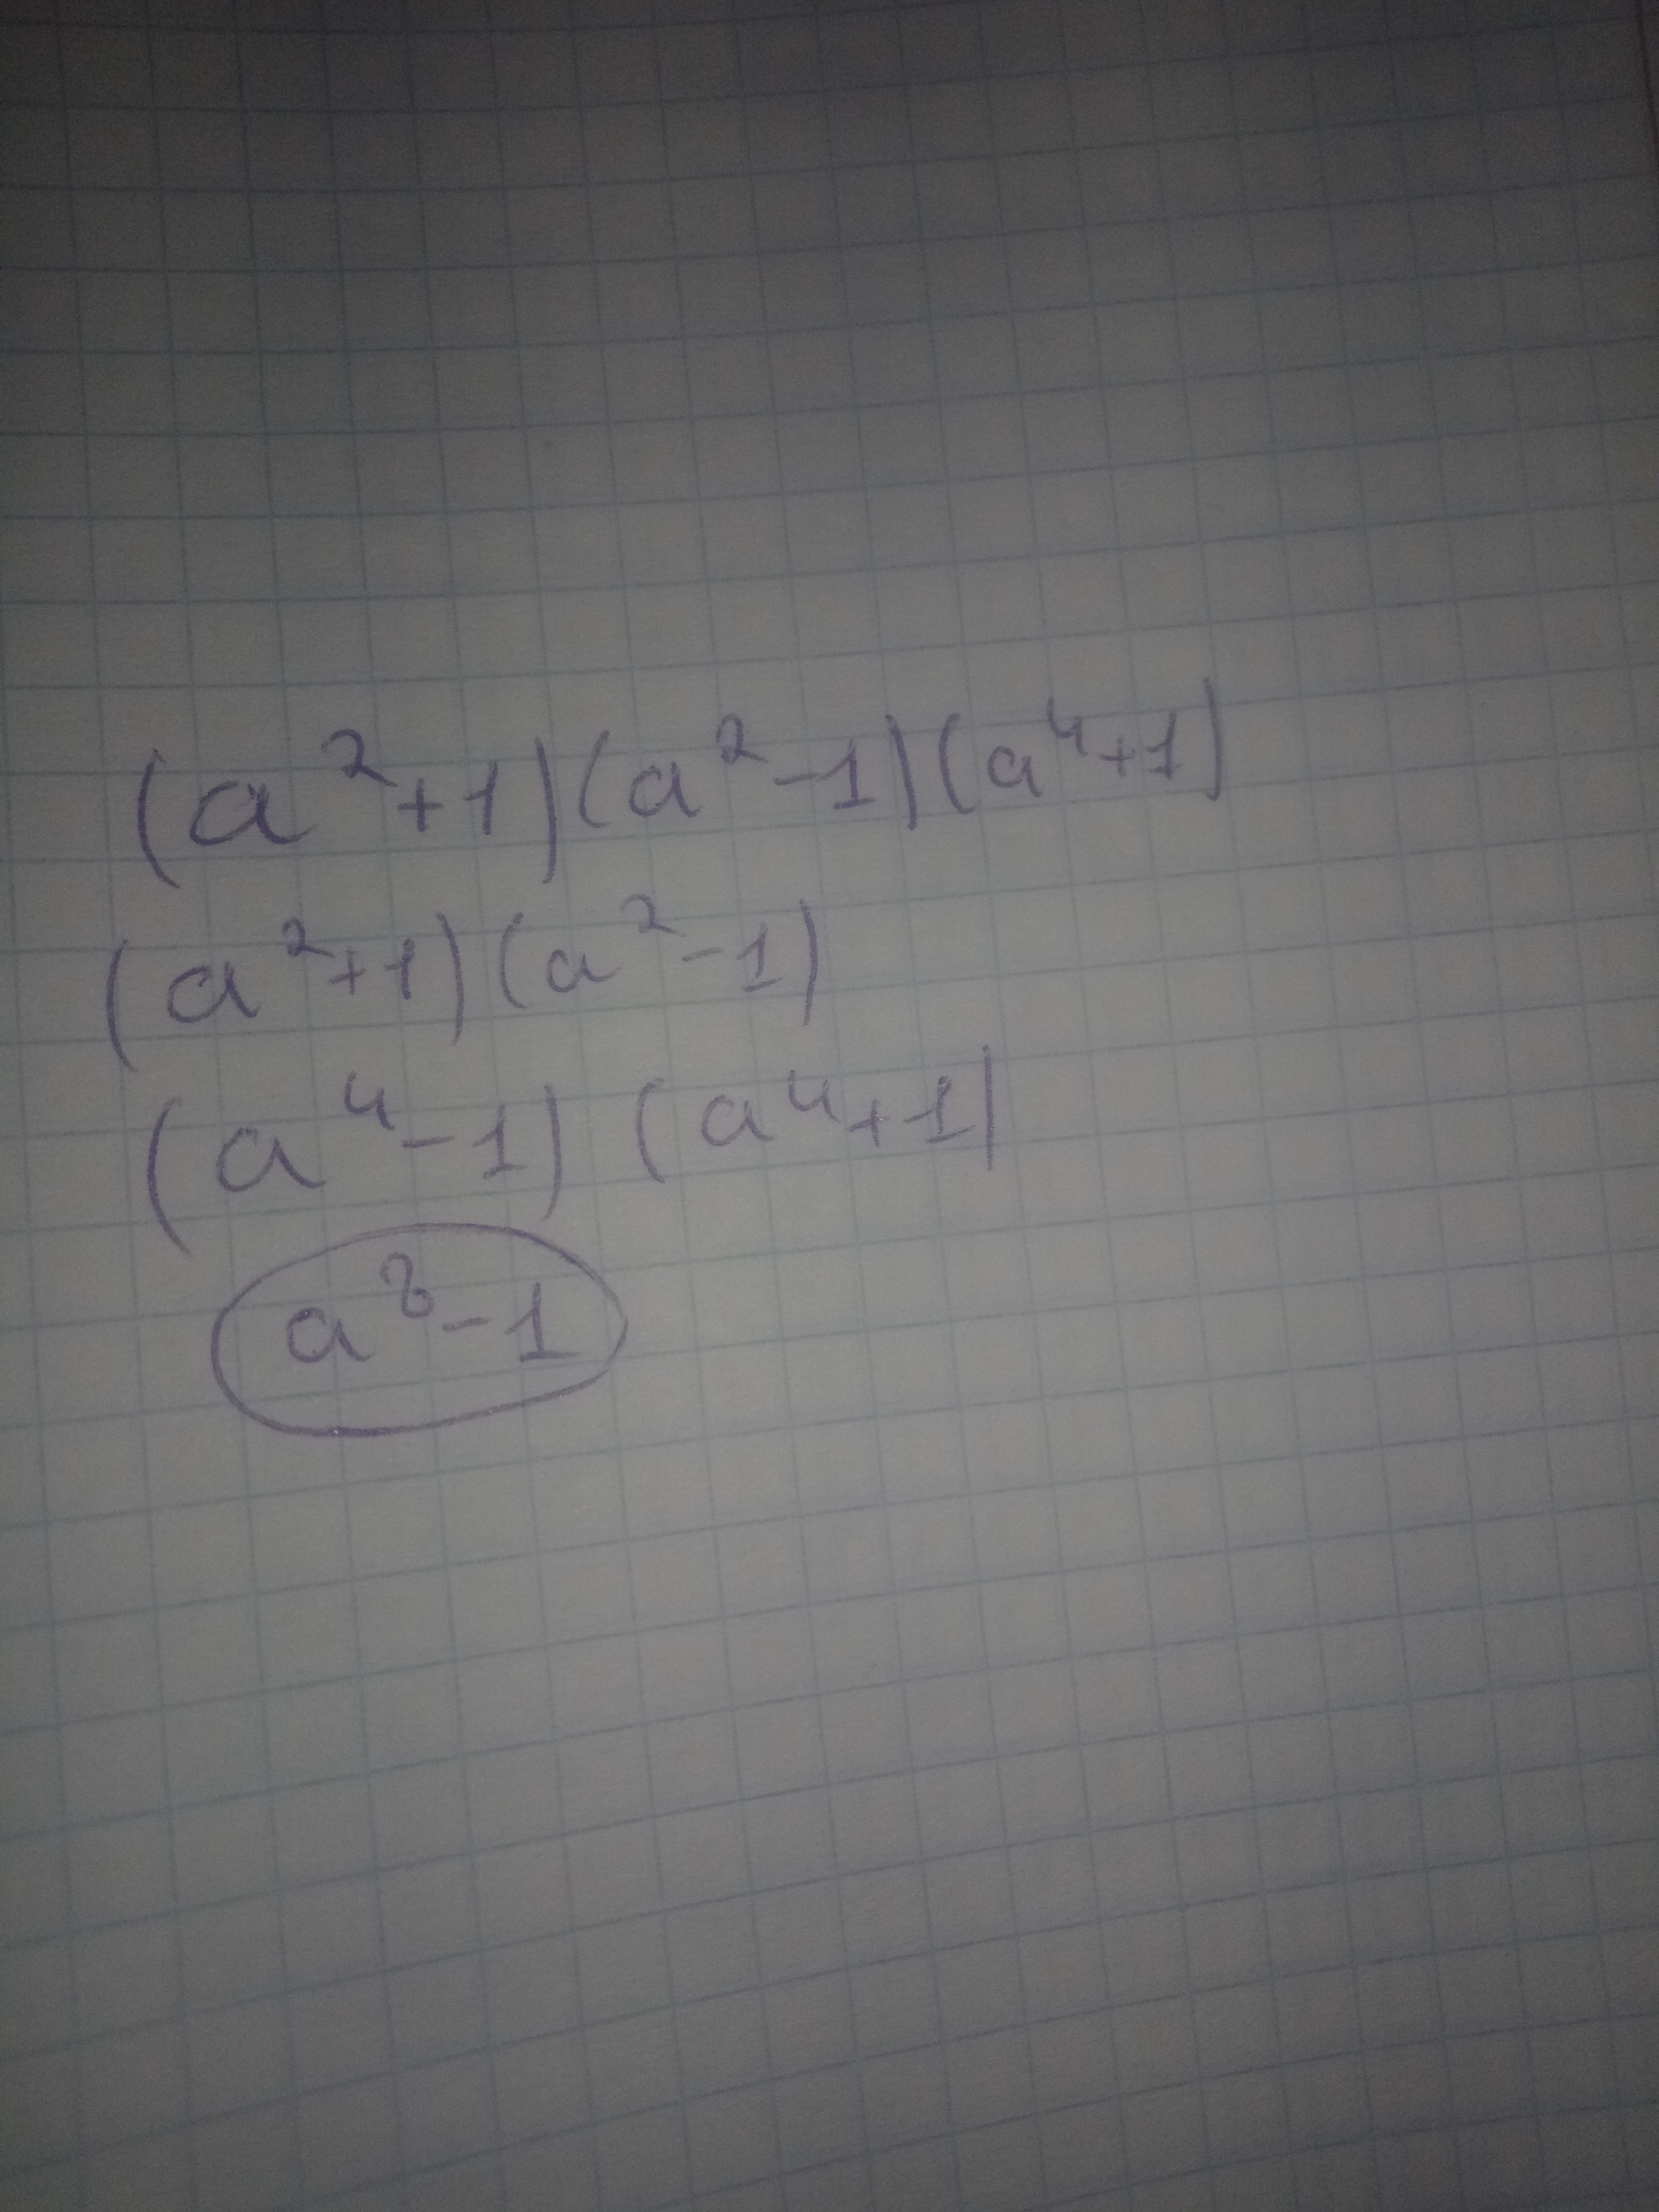 (a²+1)(a²-1)(a⁴+1)
(a²+1)(a²-1)
(a⁴-1)(a⁴+1)
a⁸-1